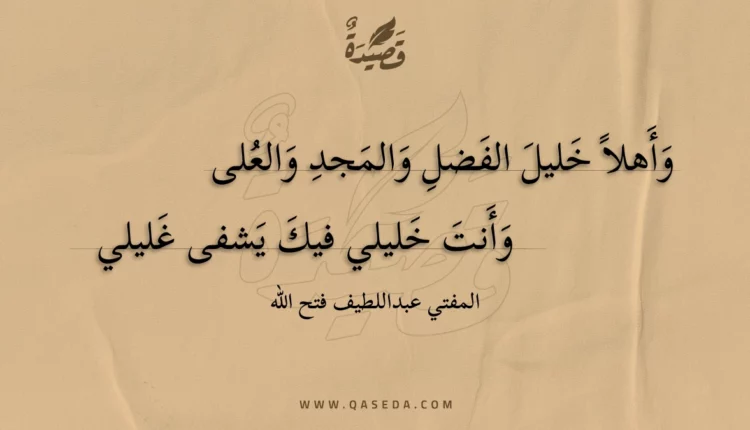 قَصِيدَةٌ
وَأَهلاً خَليلَ الفَضلِ وَالمَجدِ وَالعُلى
وَأَنتَ خَليلي فيكَ يَشفى غَليلي
المفتي عبداللطيف فتح الله
WWW.QASEDA.COM